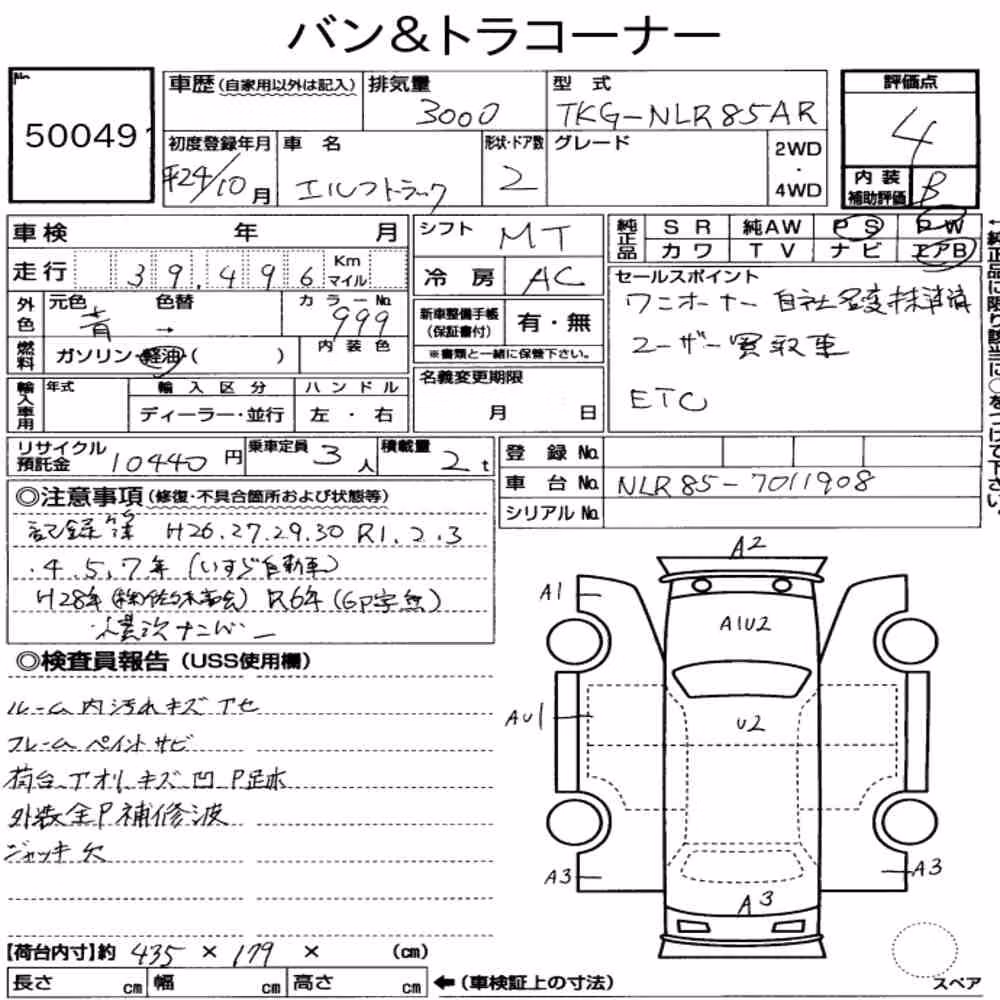 バン&トラコーナー
No. 50049
車歴(自家用以外は記入) 排気量 3000 型式 TKG-NLR85AR 評価点 4
初度登録年月 平24/10月 車名 エルフトラック 形状・ドア数 2 グレード 2WD・4WD 内装補助評価 B
車検 年 月 シフト MT 純正品 SR 純AW PS PW
走行 39,496 Km マイル 冷房 AC カワ TV ナビ エアB
←純正品に限り該当に○をつけて下さい。
外色 元色 青 色替 → カラーNo. 999 新車整備手帳(保証書付) 有・無 セールスポイント
ワンオーナー 自社名変抹消済
燃料 ガソリン・軽油・( ) 内装色 ※書類と一緒に保管下さい。 ユーザー買取車
輸入車用 年式 輸入区分 ハンドル 名義変更期限 ETC
ディーラー・並行 左・右 月 日
リサイクル預託金 10440円 乗車定員 3人 積載量 2t 登録No.
車台No. NLR85-7011908
シリアルNo.
◎注意事項(修復・不具合箇所および状態等)
記録簿 H26.27.29.30 R1.2.3
.4.5.7年(いすゞ自動車)
H28年 R6年
ナンバー
◎検査員報告(USS使用欄)
ルーム内汚れキズアセ
フレームペイントサビ
荷台、アオリ、キズ凹P足水
外装全P補修波
ジャッキ欠
A2
A1
A1U2
AU1
U2
A3
A3
A3
スペア
【荷台内寸】約 435 × 179 × (cm)
長さ cm 幅 cm 高さ cm ←(車検証上の寸法)